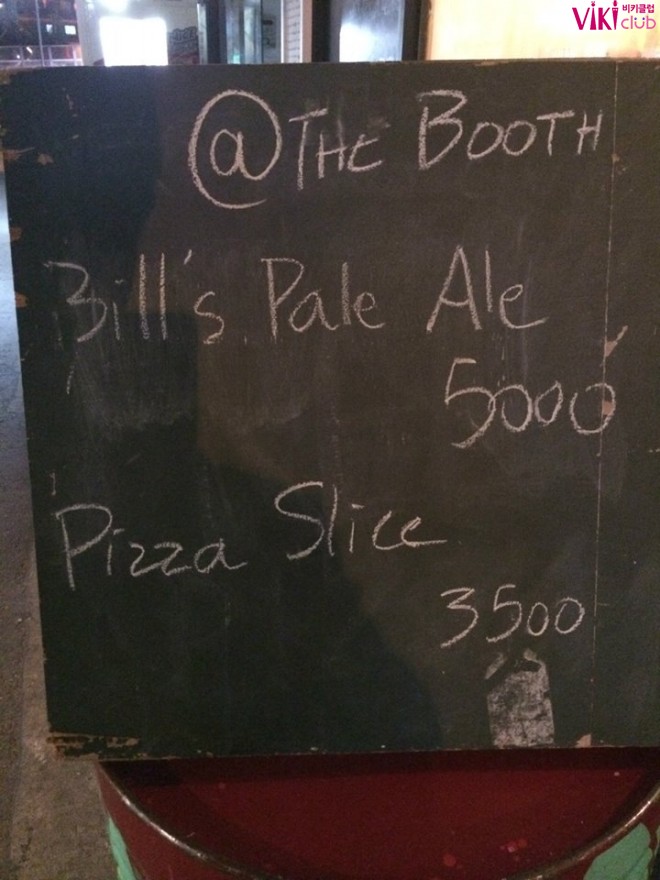 VIKI 비키클럽 club
@THE BOOTH
Bill's Pale Ale
5000
Pizza Slice
3500